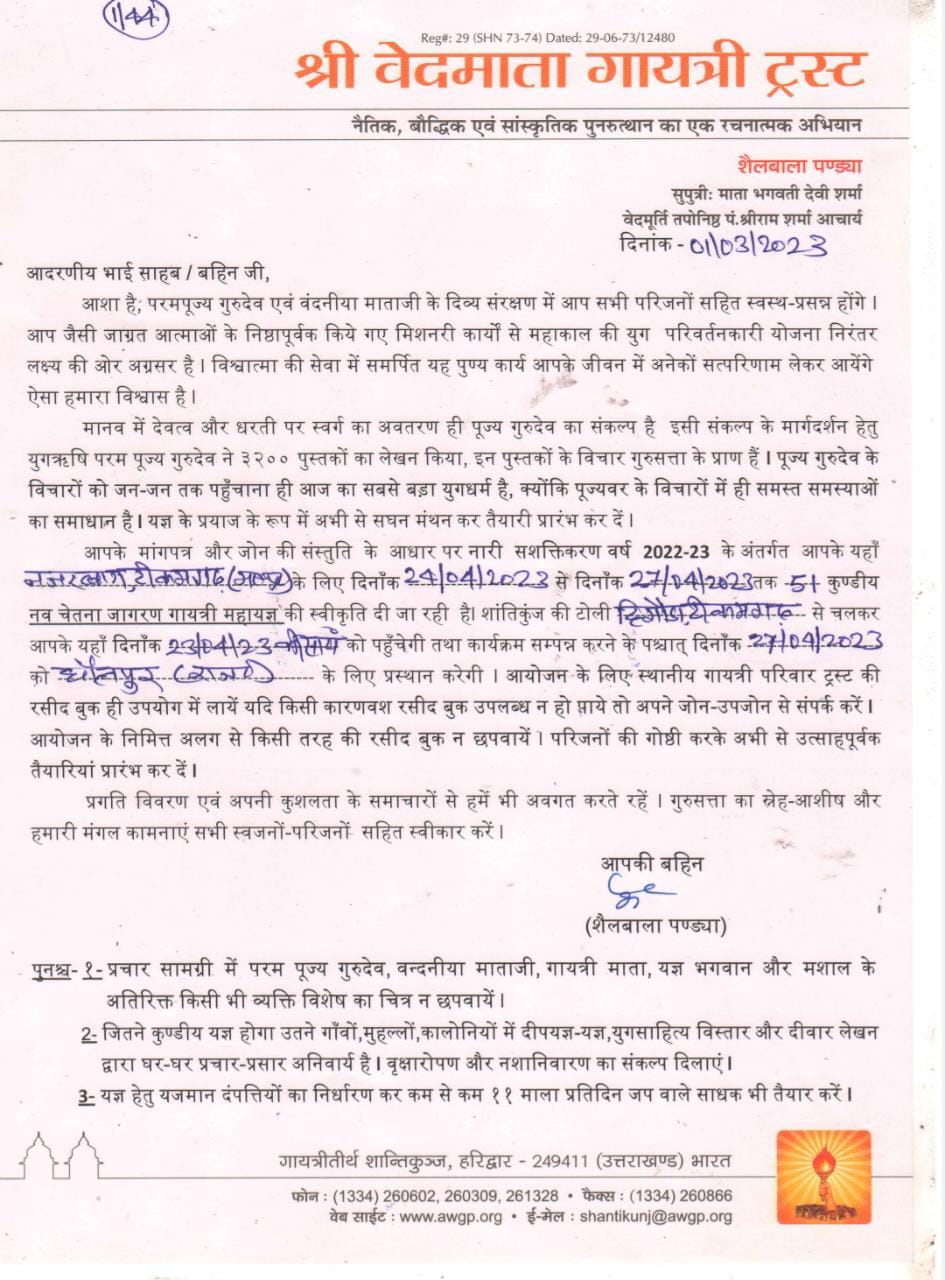 1/44
Reg#: 29 (SHN 73-74) Dated: 29-06-73/12480
श्री वेदमाता गायत्री ट्रस्ट
नैतिक, बौद्धिक एवं सांस्कृतिक पुनरुत्थान का एक रचनात्मक अभियान
शैलबाला पण्ड्या
सुपुत्री: माता भगवती देवी शर्मा
वेदमूर्ति तपोनिष्ठ पं.श्रीराम शर्मा आचार्य
दिनांक - 01/03/2023
आदरणीय भाई साहब / बहिन जी,
आशा है; परमपूज्य गुरुदेव एवं वंदनीया माताजी के दिव्य संरक्षण में आप सभी परिजनों सहित स्वस्थ-प्रसन्न होंगे ।
आप जैसी जाग्रत आत्माओं के निष्ठापूर्वक किये गए मिशनरी कार्यों से महाकाल की युग परिवर्तनकारी योजना निरंतर
लक्ष्य की ओर अग्रसर है । विश्वात्मा की सेवा में समर्पित यह पुण्य कार्य आपके जीवन में अनेकों सत्परिणाम लेकर आयेंगे
ऐसा हमारा विश्वास है ।
मानव में देवत्व और धरती पर स्वर्ग का अवतरण ही पूज्य गुरुदेव का संकल्प है इसी संकल्प के मार्गदर्शन हेतु
युगऋषि परम पूज्य गुरुदेव ने ३२०० पुस्तकों का लेखन किया, इन पुस्तकों के विचार गुरुसत्ता के प्राण हैं । पूज्य गुरुदेव के
विचारों को जन-जन तक पहुँचाना ही आज का सबसे बड़ा युगधर्म है, क्योंकि पूज्यवर के विचारों में ही समस्त समस्याओं
का समाधान है । यज्ञ के प्रयाज के रूप में अभी से सघन मंथन कर तैयारी प्रारंभ कर दें ।
आपके मांगपत्र और जोन की संस्तुति के आधार पर नारी सशक्तिकरण वर्ष 2022-23 के अंतर्गत आपके यहाँ
टीकमगढ़ (म०प्र०) के लिए दिनाँक 24/04/2023 से दिनाँक 27/04/2023 तक 51 कुण्डीय
नव चेतना जागरण गायत्री महायज्ञ की स्वीकृति दी जा रही है। शांतिकुंज की टोली टीकमगढ़ से चलकर
आपके यहाँ दिनाँक 23/04/23 की सायं को पहुँचेगी तथा कार्यक्रम सम्पन्न करने के पश्चात् दिनाँक 27/04/2023
को धौलपुर (राज०) के लिए प्रस्थान करेगी । आयोजन के लिए स्थानीय गायत्री परिवार ट्रस्ट की
रसीद बुक ही उपयोग में लायें यदि किसी कारणवश रसीद बुक उपलब्ध न हो पाये तो अपने जोन-उपजोन से संपर्क करें ।
आयोजन के निमित्त अलग से किसी तरह की रसीद बुक न छपवायें । परिजनों की गोष्ठी करके अभी से उत्साहपूर्वक
तैयारियां प्रारंभ कर दें ।
प्रगति विवरण एवं अपनी कुशलता के समाचारों से हमें भी अवगत करते रहें । गुरुसत्ता का स्नेह-आशीष और
हमारी मंगल कामनाएं सभी स्वजनों-परिजनों सहित स्वीकार करें ।
आपकी बहिन
(शैलबाला पण्ड्या)
पुनश्च- १- प्रचार सामग्री में परम पूज्य गुरुदेव, वन्दनीया माताजी, गायत्री माता, यज्ञ भगवान और मशाल के
अतिरिक्त किसी भी व्यक्ति विशेष का चित्र न छपवायें ।
2- जितने कुण्डीय यज्ञ होगा उतने गाँवों,मुहल्लों,कालोनियों में दीपयज्ञ-यज्ञ,युगसाहित्य विस्तार और दीवार लेखन
द्वारा घर-घर प्रचार-प्रसार अनिवार्य है । वृक्षारोपण और नशानिवारण का संकल्प दिलाएं ।
3- यज्ञ हेतु यजमान दंपत्तियों का निर्धारण कर कम से कम ११ माला प्रतिदिन जप वाले साधक भी तैयार करें ।
गायत्रीतीर्थ शान्तिकुञ्ज, हरिद्वार - 249411 (उत्तराखण्ड) भारत
फोन : (1334) 260602, 260309, 261328 • फैक्स : (1334) 260866
वेब साईट : www.awgp.org • ई-मेल : shantikunj@awgp.org